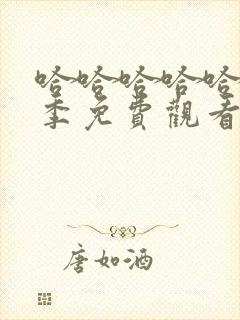 哈哈哈哈哈
季免費觀看
唐如酒